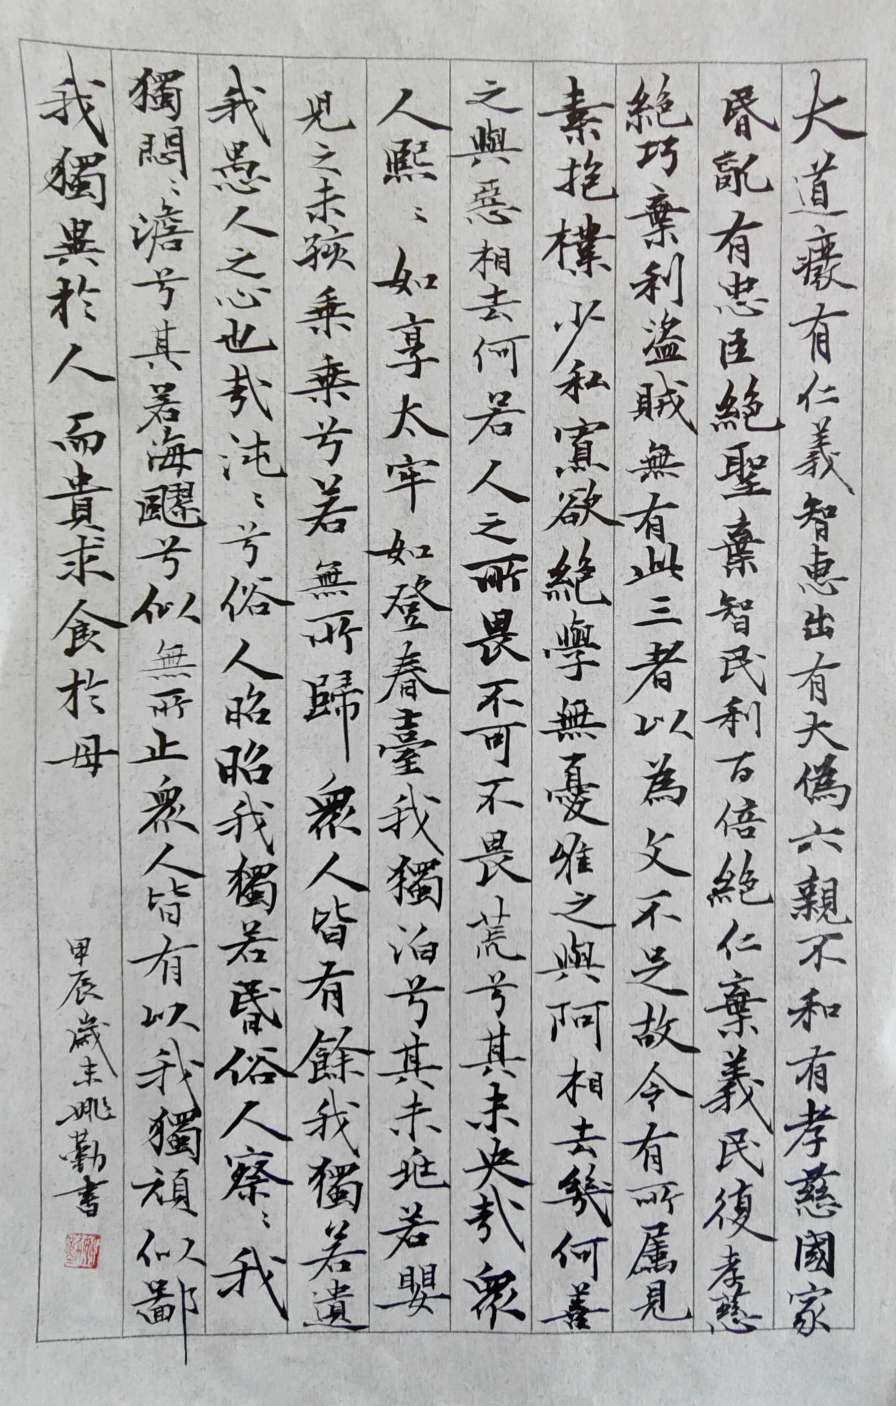 大道廢有仁義智惠出有大偽六親不和有孝慈國家
昏亂有忠臣絕聖棄智民利百倍絕仁棄義民復孝慈
絕巧棄利盜賊無有此三者以為文不足故令有所屬見
素抱樸少私寡欲絕學無憂唯之與阿相去幾何善
之與惡相去何若人之所畏不可不畏荒兮其未央哉眾
人熙〻如享太牢如登春臺我獨泊兮其未兆若嬰
兒之未孩乘乘兮若無所歸眾人皆有餘我獨若遺
我愚人之心也哉沌〻兮俗人昭昭我獨若昏俗人察〻我
獨悶〻澹兮其若海飂兮似無所止眾人皆有以我獨頑似鄙
我獨異於人而貴求食於母
甲辰歲末姚勤書